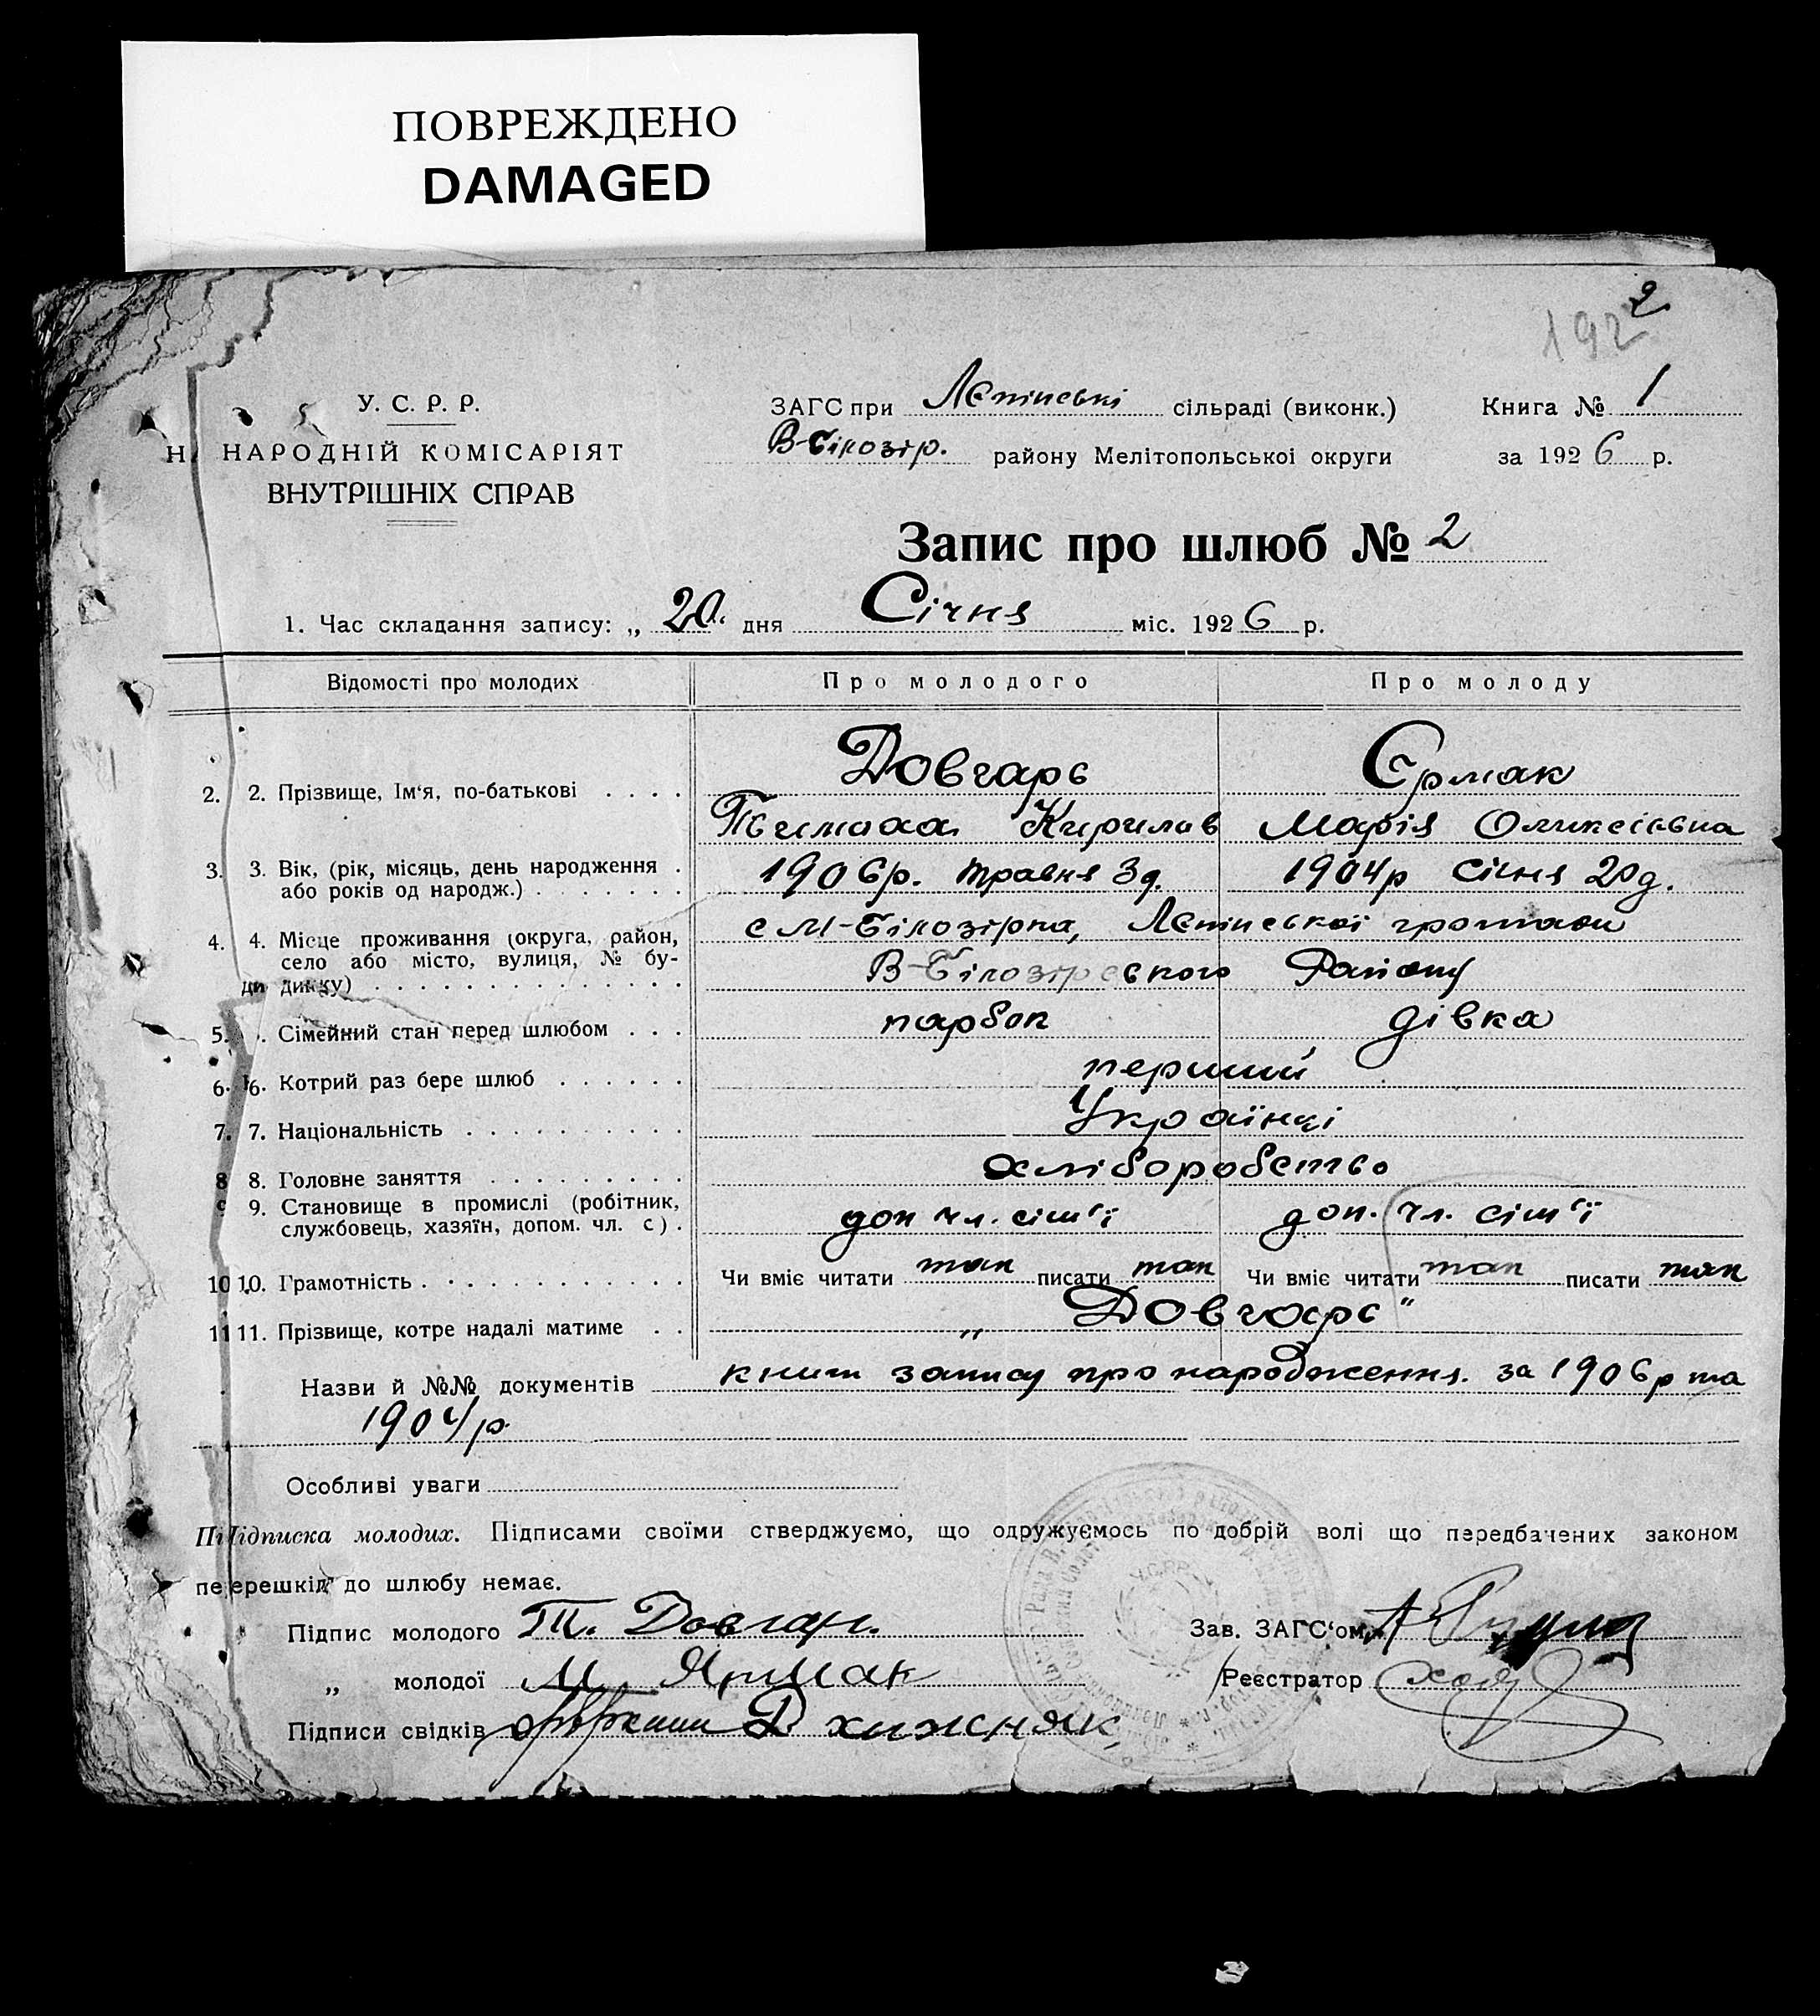 ПОВРЕЖДЕНО
DAMAGED
2
192
У. С. Р. Р.
НАРОДНІЙ КОМІСАРІЯТ
ВНУТРІШНІХ СПРАВ
ЗАГС при Лєнінські сільраді (виконк.) Книга № 1
В-Білозір. району Мелітопольської округи за 1926 р.
Запис про шлюб № 2
1. Час складання запису: „ 20 дня Січня міс. 1926 р.
Відомості про молодих Про молодого Про молоду
2. 2. Прізвище, Ім'я, по-батькові Довгарь Єрмак
Кирилов Марія Оликсієвна
3. 3. Вік, (рік, місяць, день народження 1906р. травня 3д. 1904р січня 20д.
або років од народж.)
4. 4. Місце проживання (округа, район, с М-Білозірка, Лєнінської громади
село або місто, вулиця, № бу- В-Білозірського Району
динку)
5. Сімейний стан перед шлюбом парубок дівка
6. 6. Котрий раз бере шлюб перший
7. 7. Національність Українці
8 8. Головне заняття хліборобство
9 9. Становище в промислі (робітник, доп чл. сім'ї доп. чл. сім'ї
службовець, хазяїн, допом. чл. с)
10 10. Грамотність Чи вміє читати так писати так Чи вміє читати так писати так
11 11. Прізвище, котре надалі матиме „Довгарь"
Назви й №№ документів книги запису про народження за 1906р та
1904р.
Особливі уваги
Підписка молодих. Підписами своїми стверджуємо, що одружуємось по добрій волі що передбачених законом
перешкід до шлюбу немає.
Підпис молодого Т. Довгарь Зав. ЗАГС'ом
„ молодої М. Ярмак Реєстратор
Підписи свідків Д хижняк